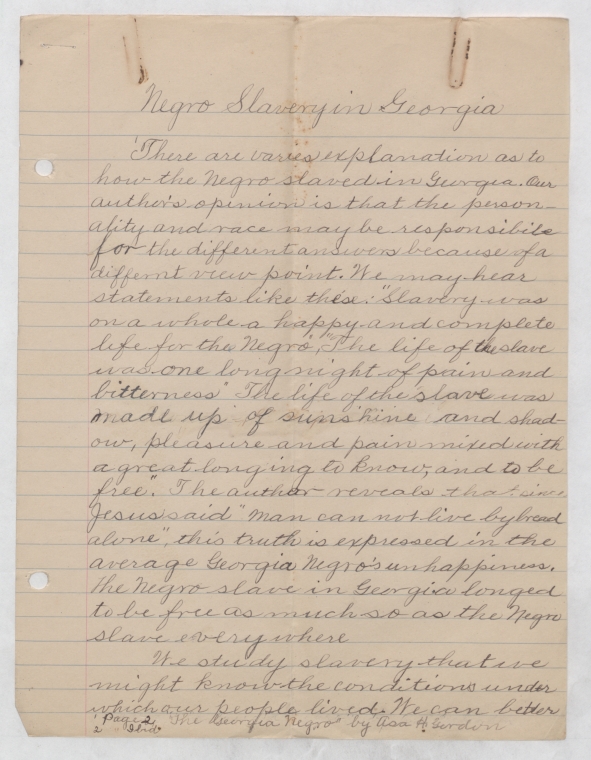 Negro Slavery in Georgia
'There are varies explanation as to
how the Negro slaved in Georgia. Our
author's opinion is that the person-
ality and race may be responsibile
for the different answers because of a
differnt view point. We may hear
statements like these: "Slavery was
on a whole a happy and complete
life for the Negro", "The life of the slave
was one long night of pain and
bitterness" The life of the slave was
made up of sunshine and shad-
ow, pleasure and pain mixed with
a great longing to know, and to be
free". The author reveals that since
Jesus said "man can not live by bread
alone", this truth is expressed in the
average Georgia Negro's unhappiness.
The Negro slave in Georgia longed
to be free as much so as the Negro
slave everywhere
We study slavery that we
might know the conditions under
which our people lived. We can better
' Page 2 "The Georgia Negro" by Asa H. Gordon
2 " Ibid"